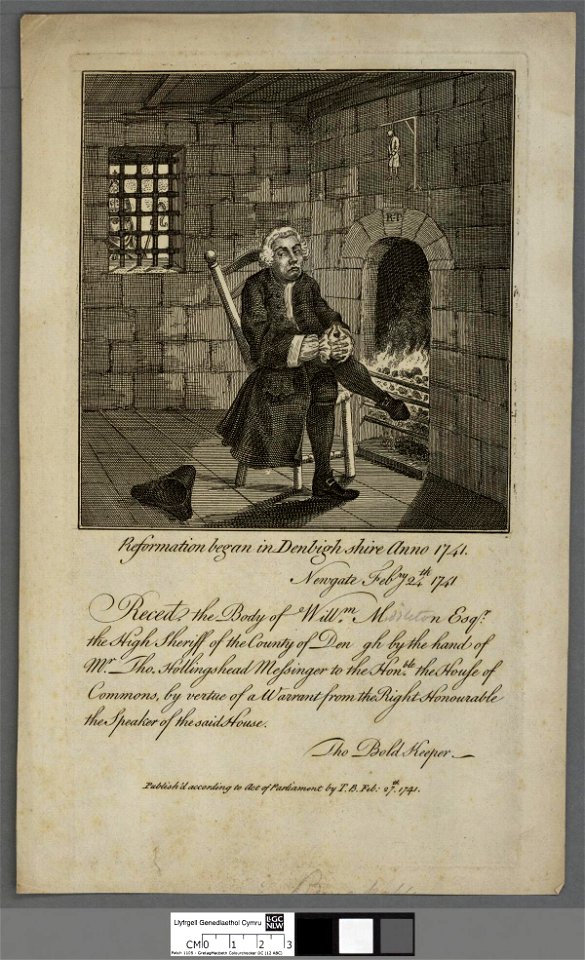 R·T
Reformation began in Denbigh shire Anno 1741.
Newgate Febry 24th 1741
Reced the Body of Willm. Middleton Esqr.
the High Sheriff of the County of Den gh by the hand of
Mr. Tho. Hollingshead Messinger to the Honble. the House of
Commons, by vertue of a Warrant from the Right Honourable
the Speaker of the said House.
Tho Bold Keeper
Publish'd according to Act of Parliament by T.B. Feb: 27th. 1741.
Llyfrgell Genedlaethol Cymru
LlGC
NLW
CM 0 1 2 3